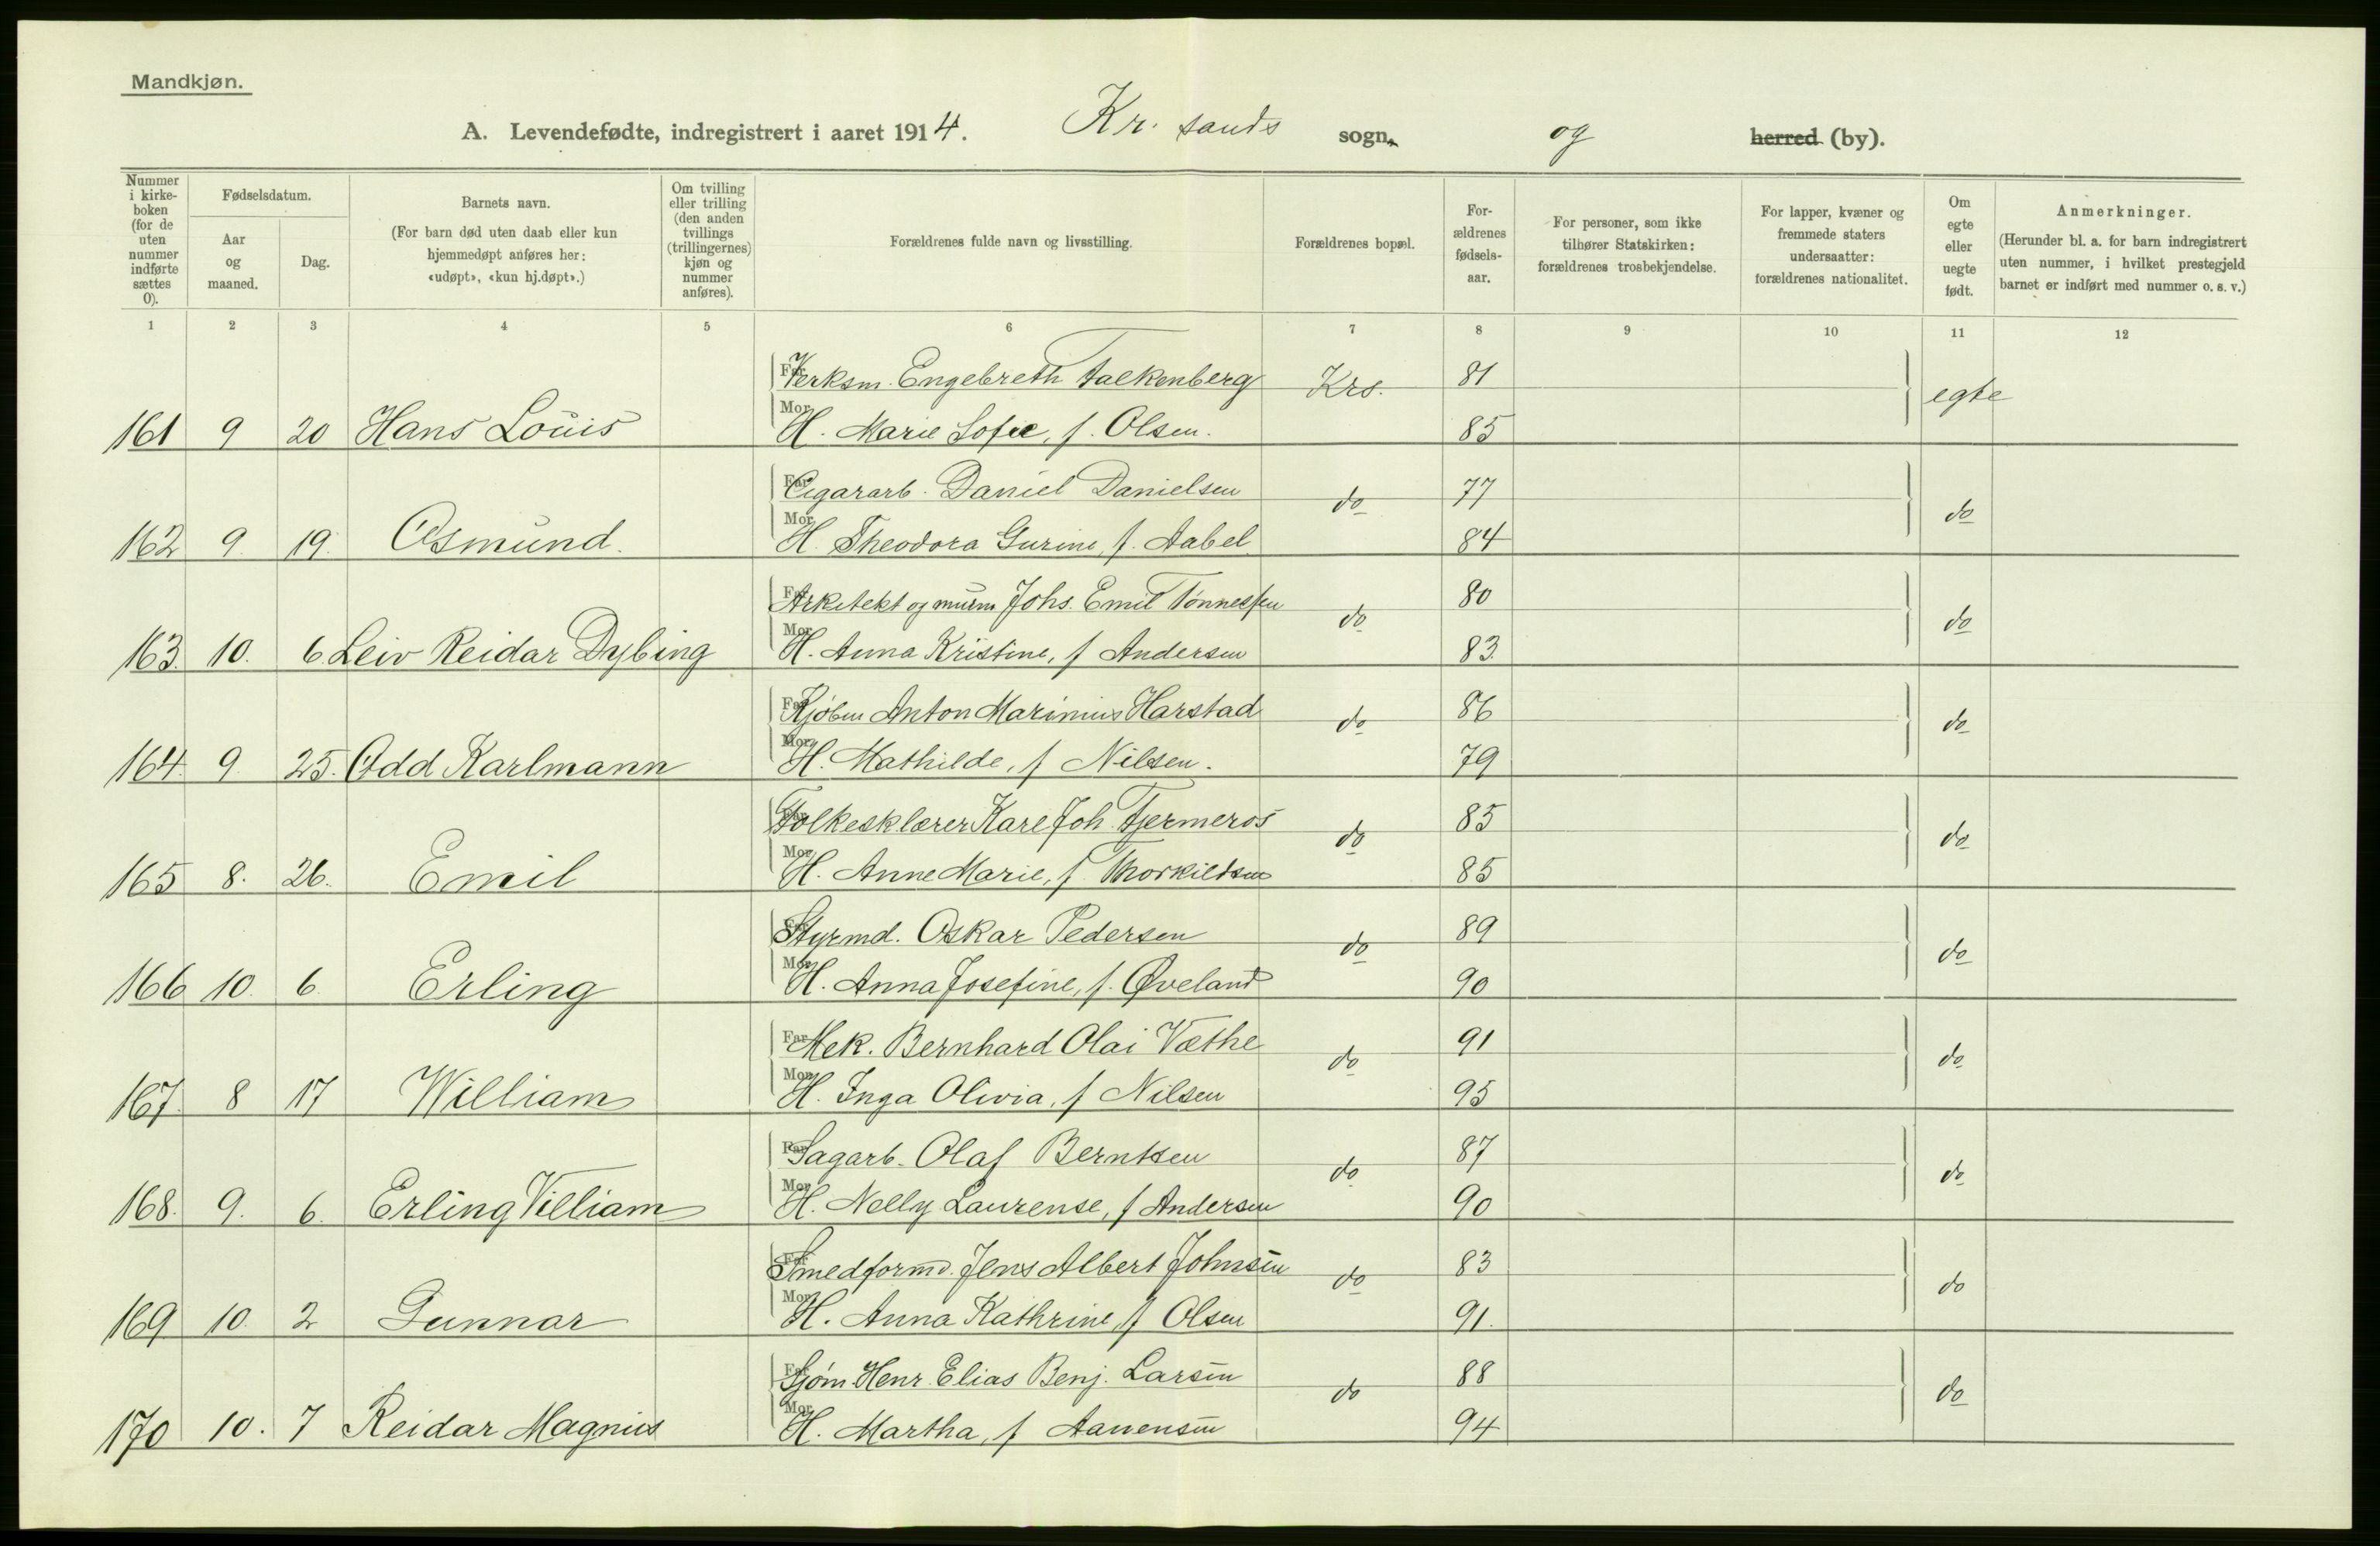 Mandkjøn.
A. Levendefødte, indregistrert i aaret 1914. Kr. sands sogn, og herred (by).
Nummer i kirke-boken (for de uten nummer indførte sættes 0).
Fødselsdatum.
Aar og maaned.
Dag.
Barnets navn.
(For barn død uten daab eller kun hjemmedøpt anføres her: «udøpt», «kun hj.døpt».)
Om tvilling eller trilling (den anden tvillings (trillingernes) kjøn og nummer anføres).
Forældrenes fulde navn og livsstilling.
Forældrenes bopæl.
For-ældrenes fødsels-aar.
For personer, som ikke tilhører Statskirken: forældrenes trosbekjendelse.
For lapper, kvæner og fremmede staters undersaatter: forældrenes nationalitet.
Om egte eller uegte født.
Anmerkninger.
(Herunder bl. a. for barn indregistrert uten nummer, i hvilket prestegjeld barnet er indført med nummer o. s. v.)
1 2 3 4 5 6 7 8 9 10 11 12
Far Verksm. Engebreth Falkenberg Krs. 81 egte
161 9 20 Hans Louis Mor H. Marie Sofie, f. Olsen. 85
Far Cigararb. Daniel Danielsen do 77 do
162 9. 19. Osmund. Mor H. Theodora Gurine, f. Aabel 84
Far Arkitekt og murm Johs. Emil Tønnessen do 80 do
163. 10. 6. Leiv Reidar Dybing Mor H. Anna Kristine, f Andersen 83.
Far Kjøbm Anton Marinius Harstad do 86 do
164. 9. 25. Odd Karlmann Mor H. Mathilde, f Nilsen. 79
Far Folkesklærer Kare Joh. Tjermeros do 85 do
165 8. 26. Emil Mor H. Anne Marie, f. Thorkildsen 85
Far Styrmd. Oskar Pedersen do 89 do
166 10. 6. Erling Mor H. Anna Josefine, f. Øveland 90
Far Mek. Bernhard Olai Vathe do 91 do
167. 8 17 William Mor H. Inga Olivia, f Nilsen 95
Far Sagarb. Olaf Berntsen do 87 do
168. 9. 6. Erling Villiam Mor H. Nelly Laurense, f Andersen 90
Far Smedformd. Jens Albert Johnsen do 83 do
169 10. 2 Gunnar Mor H. Anna Kathrine, f Olsen 91.
Far Sjøm. Henr. Elias Benj. Larsen do 88 do
170 10. 7 Reidar Magnus Mor H. Martha, f Aanensen 94